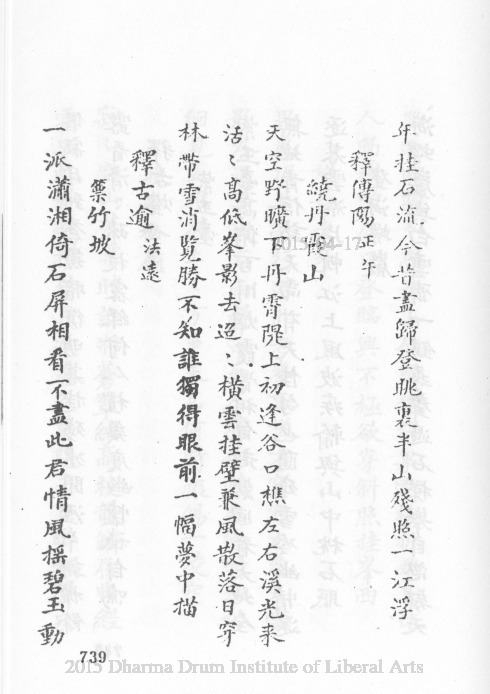 年挂石流今昔盡歸登眺裏半山殘照一江浮
釋傳陽正午
繞丹霞山
天空野曠下丹霄隄上初逢谷口樵左右溪光来
活〻高低峯影去迢〻橫雲挂壁兼風散落日穿
林帶雪消覽勝不知誰獨得眼前一幅夢中描
釋古逾法遠
篥竹坡
一派瀟湘倚石屏相看不盡此君情風摇碧玉動
2015-04-17
739
2015 Dharma Drum Institute of Liberal Arts